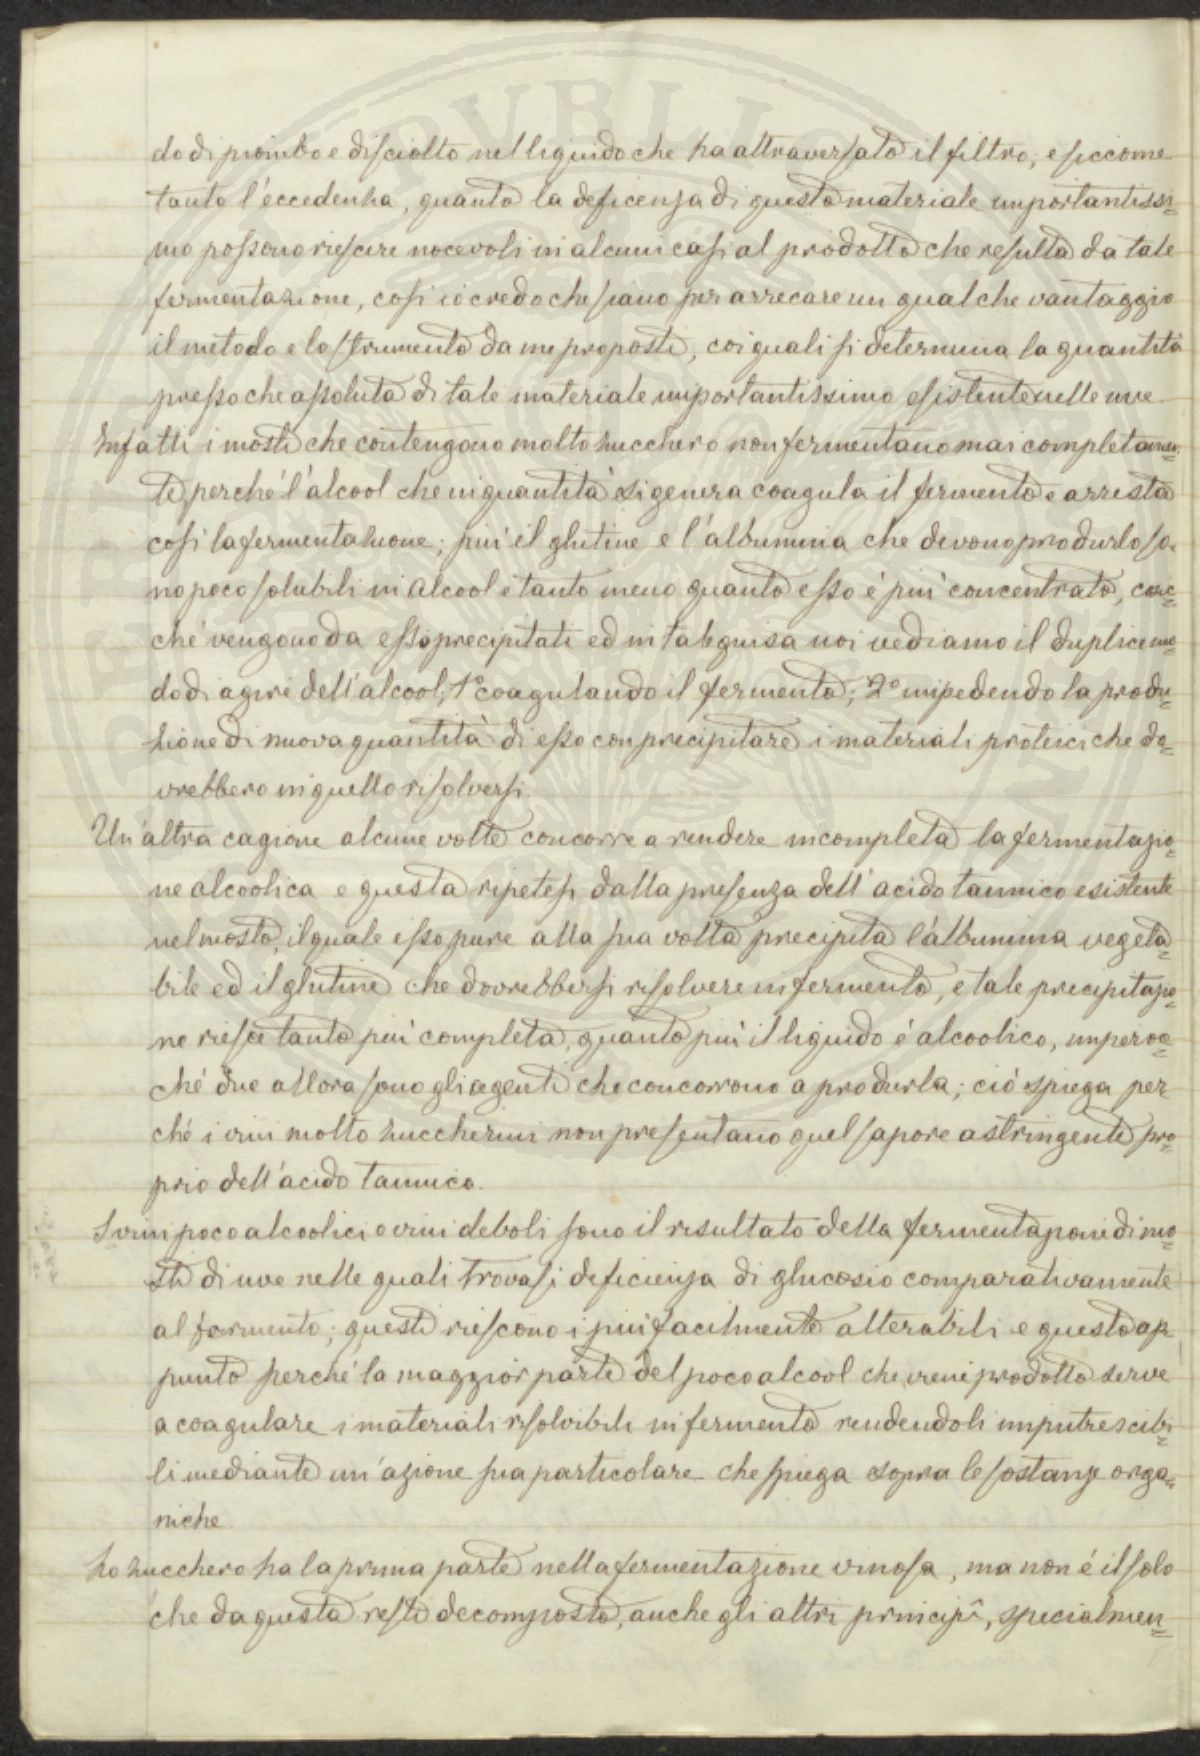 do di piombo e disciolto nel liquido che ha attraversato il filtro, e siccome
tanto l'eccedenza, quanto la deficenza di questo materiale importantissi=
mo possono riescire nocevoli in alcuni casi al prodotto che resulta da tale
fermentazione, così io credo che siano per arrecare un qualche vantaggio
il metodo e lo strumento da me proposti, coi quali si determina la quantità
presso che assoluta di tale materiale importantissimo esistente nelle uve.
Infatti i mosti che contengono molto zucchero non fermentano mai completamen=
te perché l'alcool che in quantità si genera coagula il fermento e arresta
così la fermentazione; più il glutine e l'albumina che devono produrlo so=
no poco solubili in alcool e tanto meno quanto esso è più concentrato, cosic=
ché vengono da esso precipitati ed in tal guisa noi vediamo il duplice mo=
do di agire dell'alcool; 1° coagulando il fermento; 2° impedendo la produ=
zione di nuova quantità di esso con precipitare i materiali proteici che do=
vrebbero in quello risolversi.
Un'altra cagione alcune volte concorre a rendere incompleta la fermentazio=
ne alcoolica e questa ripetesi dalla presenza dell'acido tannico esistente
nel mosto, il quale esso pure alla sua volta precipita l'albumina vegeta=
bile ed il glutine che dovrebbersi risolvere in fermento, e tale precipitazio=
ne riesce tanto più completa, quanto più il liquido è alcoolico, imperoc=
ché due allora sono gli agenti che concorrono a produrla; ciò spiega per=
ché i vini molto zuccherini non presentano quel sapore astringente pro=
prio dell'acido tannico.
I vini poco alcoolici o vini deboli sono il risultato della fermentazione di mo=
sti di uve nelle quali trovasi deficienza di glucosio comparativamente
al fermento; questi riescono i più facilmente alterabili e questo ap=
punto perché la maggior parte del poco alcool che viene prodotto serve
a coagulare i materiali risolvibili in fermento rendendoli imputrescibi=
li mediante un'azione sua particolare che spiega sopra le sostanze orga=
niche.
Lo zucchero ha la prima parte nella fermentazione vinosa, ma non è il solo
che da questa resti decomposto, anche gli altri principî, specialmen=